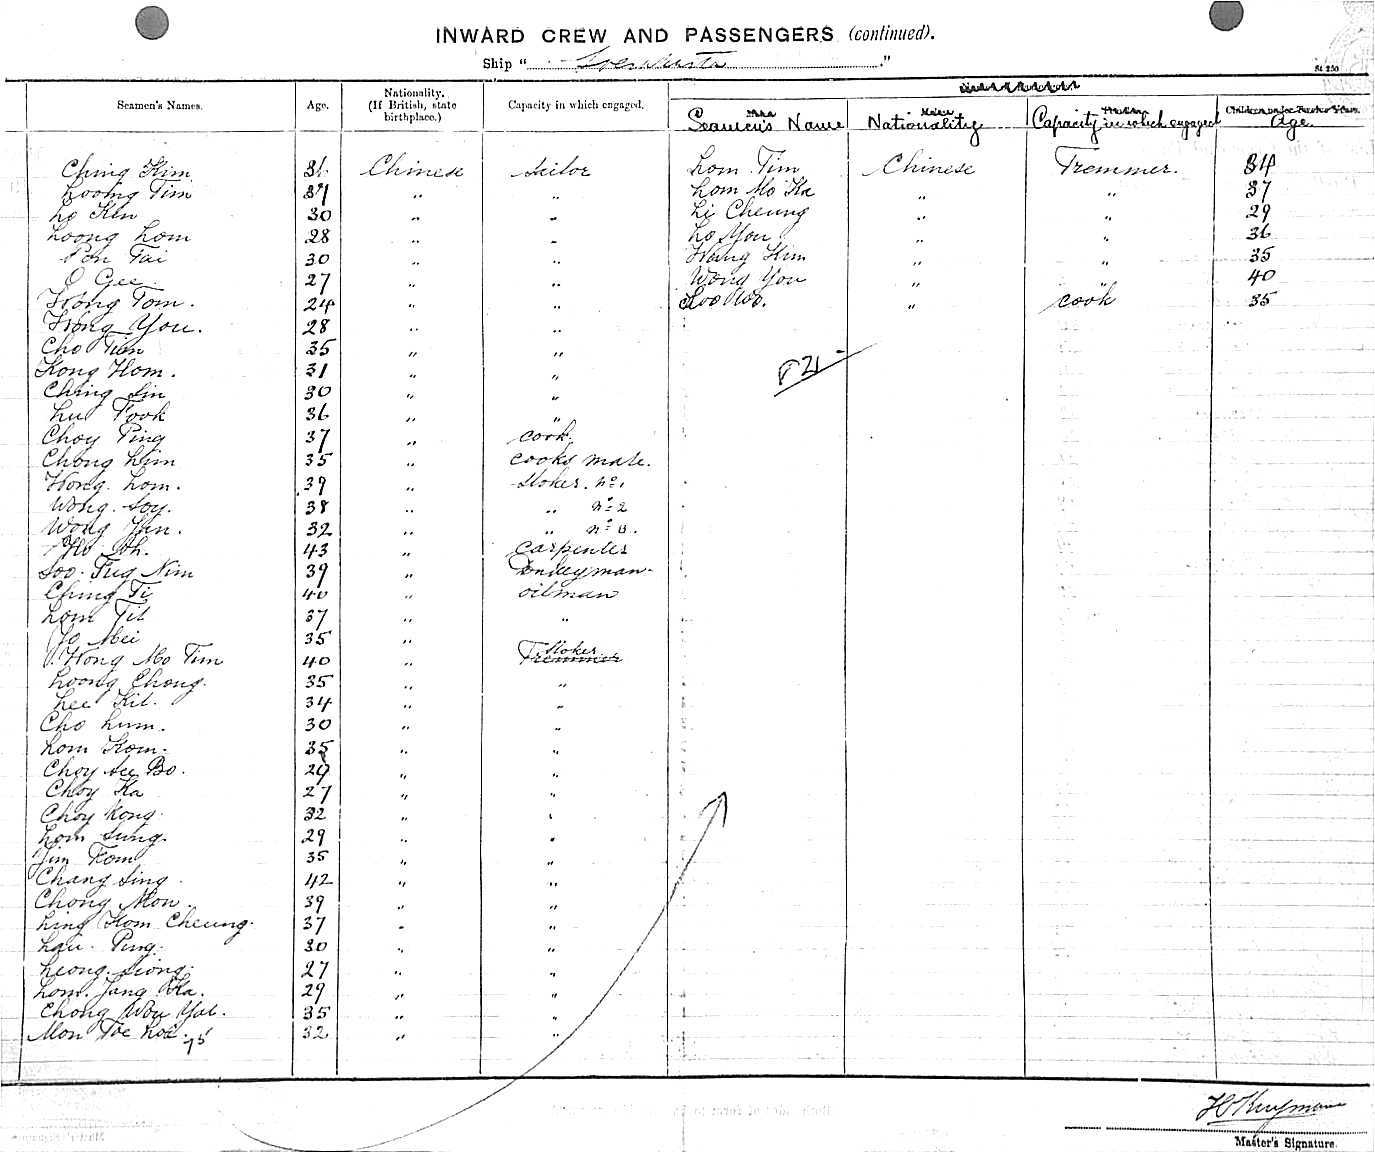 INWARD CREW AND PASSENGERS (continued).
Ship " "
St 250
Seamen's Names. Age. Nationality. (If British, state birthplace.) Capacity in which engaged. Seamen's Name Nationality Capacity in which engaged Age.
Ching Kim 36 Chinese Sailor Lom Tim Chinese Tremmer. 34
Loong Tim 37 " " Lom Mo Ka " " 37
Lo Kin 30 " " Li Cheung " " 29
Loong Lom 28 " " Lo You " " 36
Pon Tai 30 " " Wang Him " " 35
O Gee 27 " " Wong You " " 40
Wong Tom. 24 " " " cook 35
Wong You. 28 " "
Cho Tim 35 " "
Kong Hom. 31 " "
Ching Sin 30 " "
Lui Fook 36 " "
Choy Ping 37 " cook.
Chong Lim 35 " cooks mate.
Wong Lom. 39 " Stoker. No 1
Wong Soy. 38 " " No 2
Wong Yun. 32 " " No 3.
43 " carpenter
Soo Fug Nim 39 " Donkeyman
Ching Ti 40 " oilman
Lom Til 37 " "
Yo Mei 35 "
Wong Mo Tim 40 " Stoker Tremmer
Loong Chong. 35 " "
Lee Kit. 34 " "
Cho Lum. 30 " "
Lom Kom. 35 " "
Choy See Bo. 29 " "
Choy Ka 27 " "
Choy Kong. 32 " "
Lom Sung. 29 " "
Jim Kom 35 " "
Chang Sing 42 " "
Chong Mon. 39 " "
Ling Kom Cheung. 37 " "
Lau Ping. 30 " "
Leong Siong. 27 " "
Lom Jang Ka. 29 " "
Chong Wou Yat. 35 " "
Mon Toe 32 " "
75
Master's Signature.